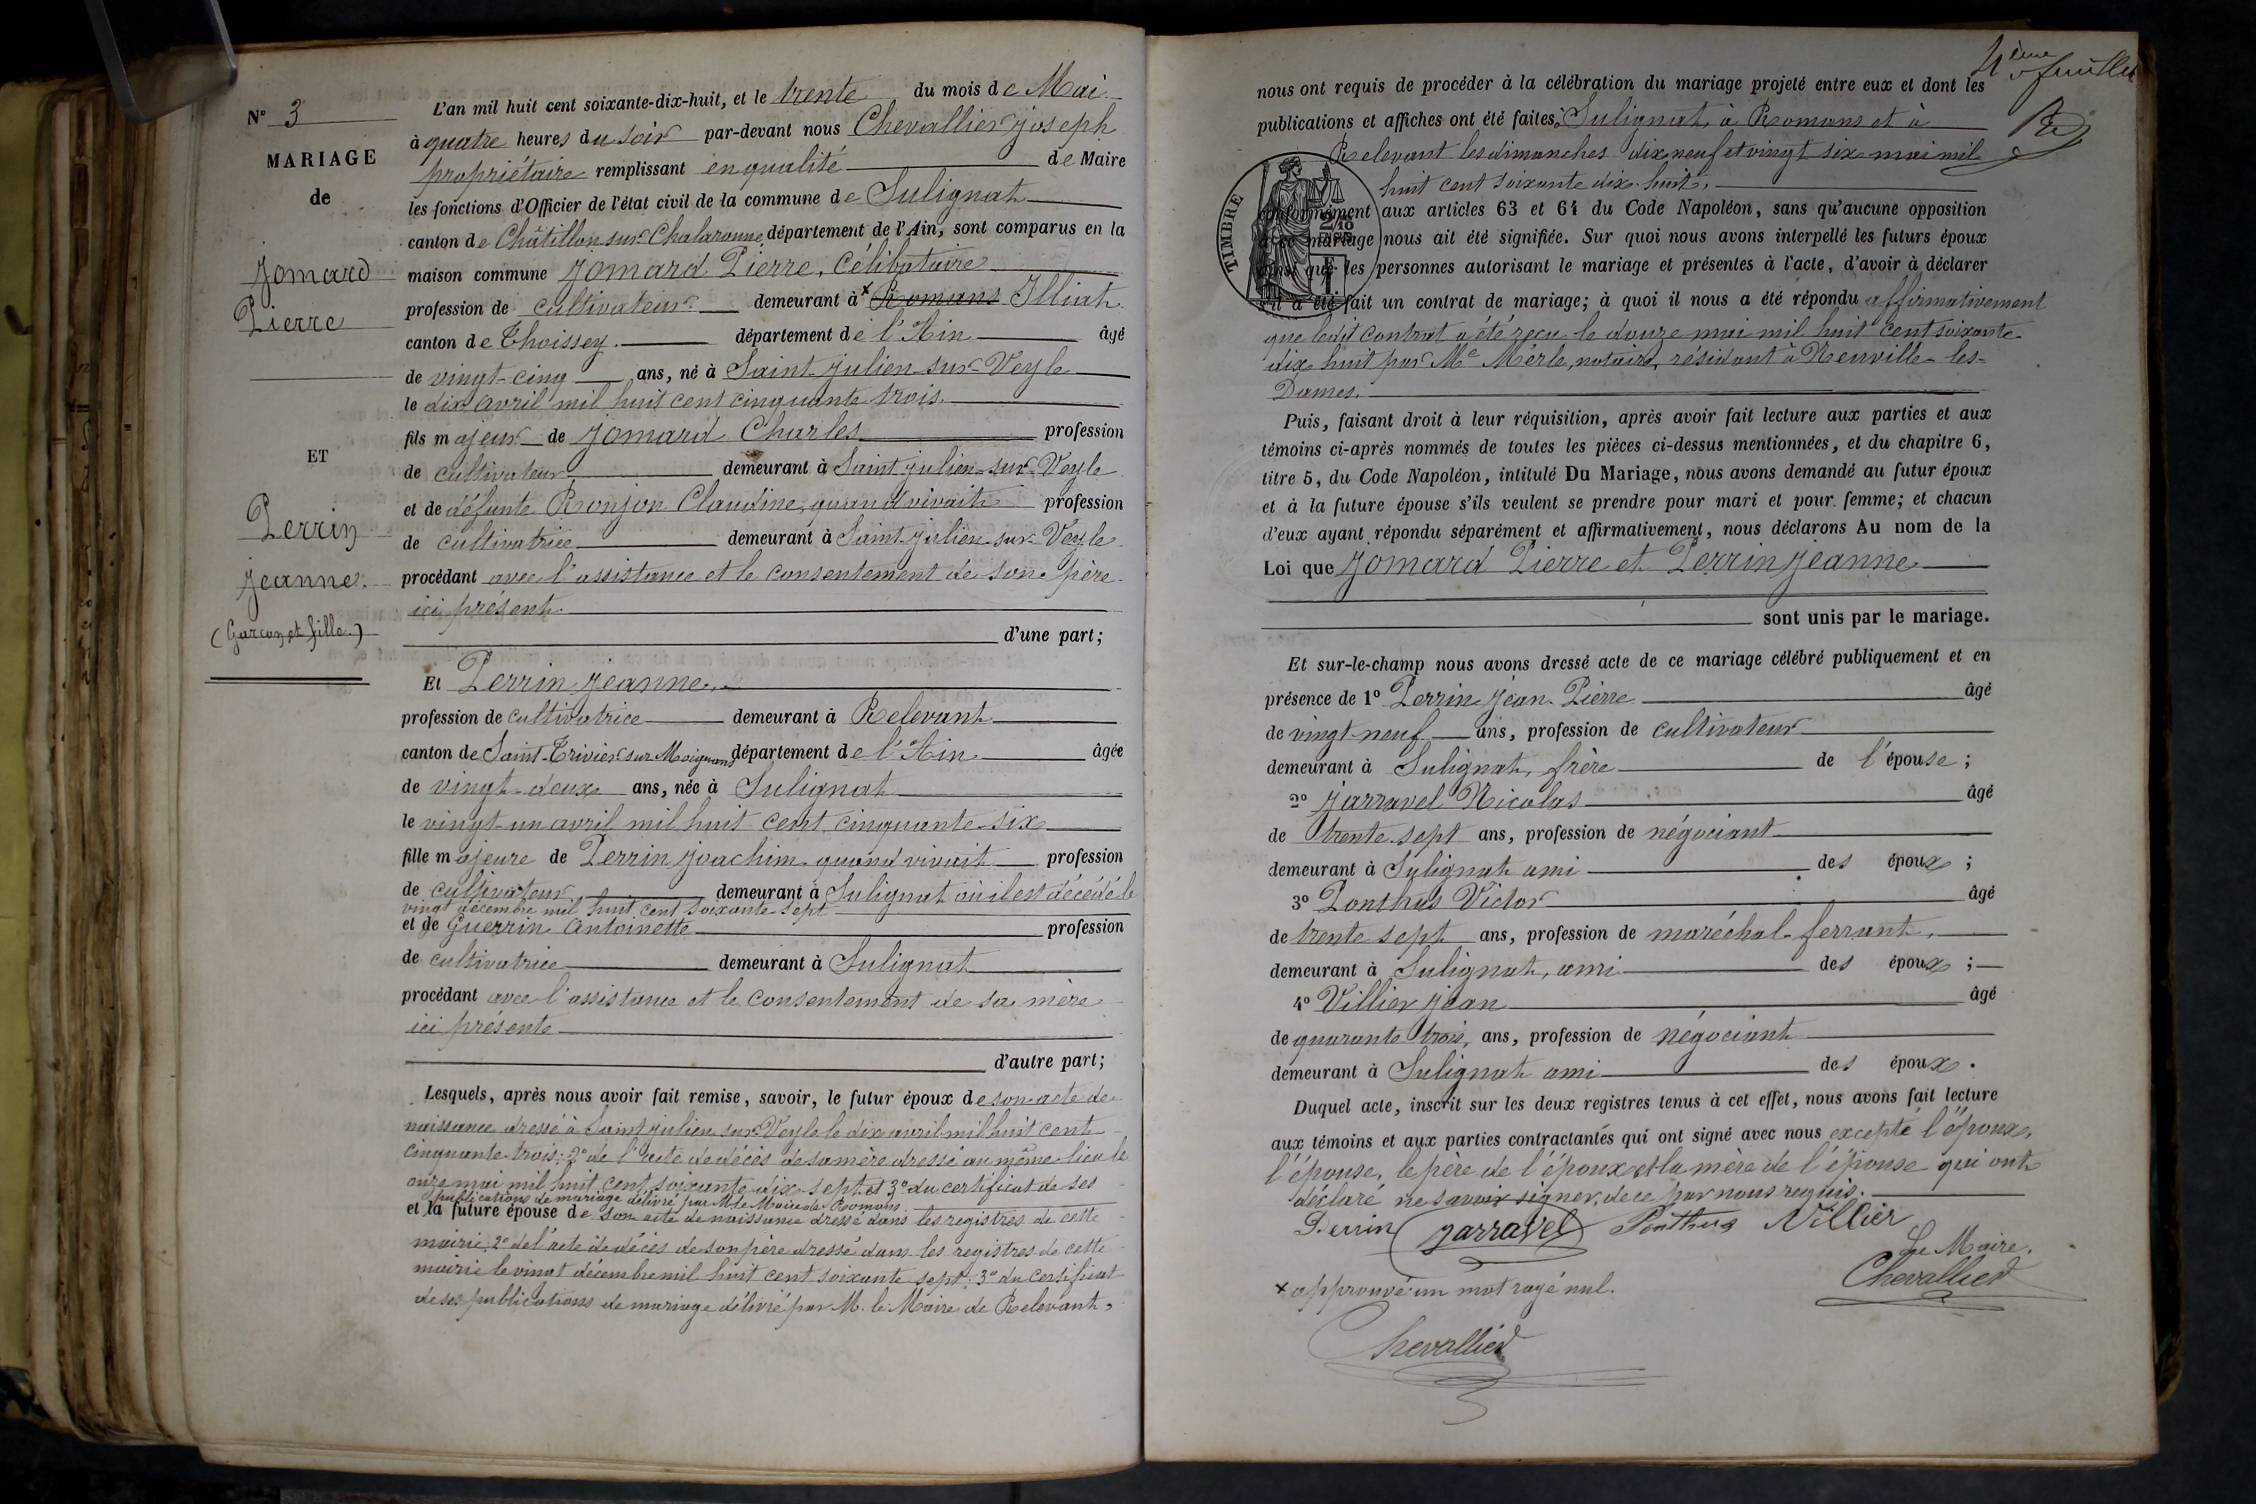 N° 3
MARIAGE
de
Jomard
Pierre
ET
Perrin
Jeanne.
(Garçon et fille)
L'an mil huit cent soixante-dix-huit, et le trente du mois de Mai
à quatre heures du soir par-devant nous Chevallier Joseph
propriétaire remplissant en qualité de Maire
les fonctions d'Officier de l'état civil de la commune de Sulignat
canton de Châtillon sur Chalaronne, département de l'Ain, sont comparus en la
maison commune Jomard Pierre, Célibataire
profession de cultivateur demeurant à x Romans Illiat
canton de Thoissey. département de l'Ain âgé
de vingt-cinq ans, né à Saint-Julien-sur-Veyle
le dix avril mil huit cent cinquante trois.
fils majeur de Jomard Charles profession
de cultivateur demeurant à Saint Julien-sur-Veyle
et de défunte Ronjon Claudine, quand vivait profession
de cultivatrice demeurant à Saint-Julien-sur-Veyle
procédant avec l'assistance et le consentement de son père
ici présent.
d'une part;
Et Perrin Jeanne.
profession de cultivatrice demeurant à Relevant
canton de Saint-Trivier sur Moignans département de l'Ain âgée
de vingt-deux ans, née à Sulignat
le vingt-un avril mil huit cent cinquante-six
fille majeure de Perrin Joachim quand vivait profession
de cultivateur demeurant à Sulignat où il est décédé le
vingt décembre mil huit cent soixante sept
et de Guerrin Antoinette profession
de cultivatrice demeurant à Sulignat
procédant avec l'assistance et le consentement de sa mère
ici présente
d'autre part;
Lesquels, après nous avoir fait remise, savoir, le futur époux de son acte de
naissance dressé à Saint Julien sur Veyle le dix avril mil huit cent
cinquante-trois; 2° de l'acte de décès de sa mère dressé au même lieu le
onze mai mil huit cent soixante dix-sept et 3° du certificat de ses
publications de mariage délivré par M. le Maire de Romans
et la future épouse de son acte de naissance dressé dans les registres de cette
mairie; 2° de l'acte de décès de son père dressé dans les registres de cette
mairie le vingt décembre mil huit cent soixante sept; 3° du certificat
de ses publications de mariage délivré par M. le Maire de Relevant,
4ème feuillet
nous ont requis de procéder à la célébration du mariage projeté entre eux et dont les
publications et affiches ont été faites à Sulignat, à Romans et à
Relevant les dimanches dix neuf et vingt six mai mil
huit cent soixante dix-huit,
TIMBRE
conformément aux articles 63 et 64 du Code Napoléon, sans qu'aucune opposition
à ce mariage nous ait été signifiée. Sur quoi nous avons interpellé les futurs époux
ainsi que les personnes autorisant le mariage et présentes à l'acte, d'avoir à déclarer
s'il a été fait un contrat de mariage; à quoi il nous a été répondu affirmativement
que ledit contrat a été reçu le douze mai mil huit cent soixante-
dix huit par Me Merle, notaire, résidant à Neuville-les-
Dames.
Puis, faisant droit à leur réquisition, après avoir fait lecture aux parties et aux
témoins ci-après nommés de toutes les pièces ci-dessus mentionnées, et du chapitre 6,
titre 5, du Code Napoléon, intitulé Du Mariage, nous avons demandé au futur époux
et à la future épouse s'ils veulent se prendre pour mari et pour femme; et chacun
d'eux ayant répondu séparément et affirmativement, nous déclarons Au nom de la
Loi que Jomard Pierre et Perrin Jeanne
sont unis par le mariage.
Et sur-le-champ nous avons dressé acte de ce mariage célébré publiquement et en
présence de 1° Perrin Jean-Pierre âgé
de vingt-neuf ans, profession de cultivateur
demeurant à Sulignat, frère de l'épouse;
2° Jarravel Nicolas âgé
de trente-sept ans, profession de négociant
demeurant à Sulignat ami des époux;
3° Ponthus Victor âgé
de trente sept ans, profession de maréchal-ferrant,
demeurant à Sulignat, ami des époux;
4° Villier Jean âgé
de quarante trois, ans, profession de négociant
demeurant à Sulignat ami des époux.
Duquel acte, inscrit sur les deux registres tenus à cet effet, nous avons fait lecture
aux témoins et aux parties contractantes qui ont signé avec nous excepté l'époux,
l'épouse, le père de l'époux et la mère de l'épouse qui ont
déclaré ne savoir signer, de ce par nous requis.
Perrin Jarravel Ponthus Villier
Le Maire,
Chevallier
x approuvé un mot rayé nul.
Chevallier